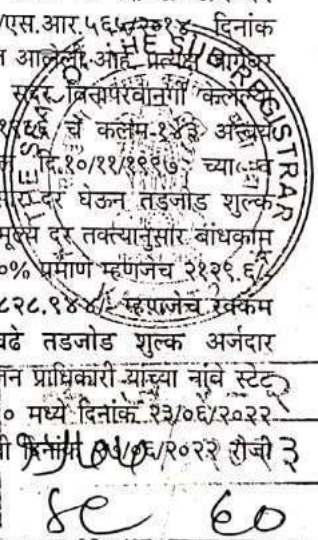 /एस.आर.५६५/२०१४ दिनांक
आलेली आहे. प्रत्यक्ष जागेवर
सदर विनापरवानगी केलेल्या
१९६६ चे कलम-१४३ अन्वये
दि.१०/११/१९९७ च्या व
दर घेऊन तडजोड शुल्क
मूल्य दर तक्त्यानुसार बांधकाम
०% प्रमाणे म्हणजेच २१२९.६/-
८२८.९४४/- म्हणजेच रक्कम
वढे तडजोड शुल्क अर्जदार
जन प्राधिकारी यांच्या नांवे स्टेट
० मध्ये दिनांक २३/०६/२०२२
दिनांक /०६/२०२२ रोजी
THE SUB REGISTRAR
२
३
४८ ६०